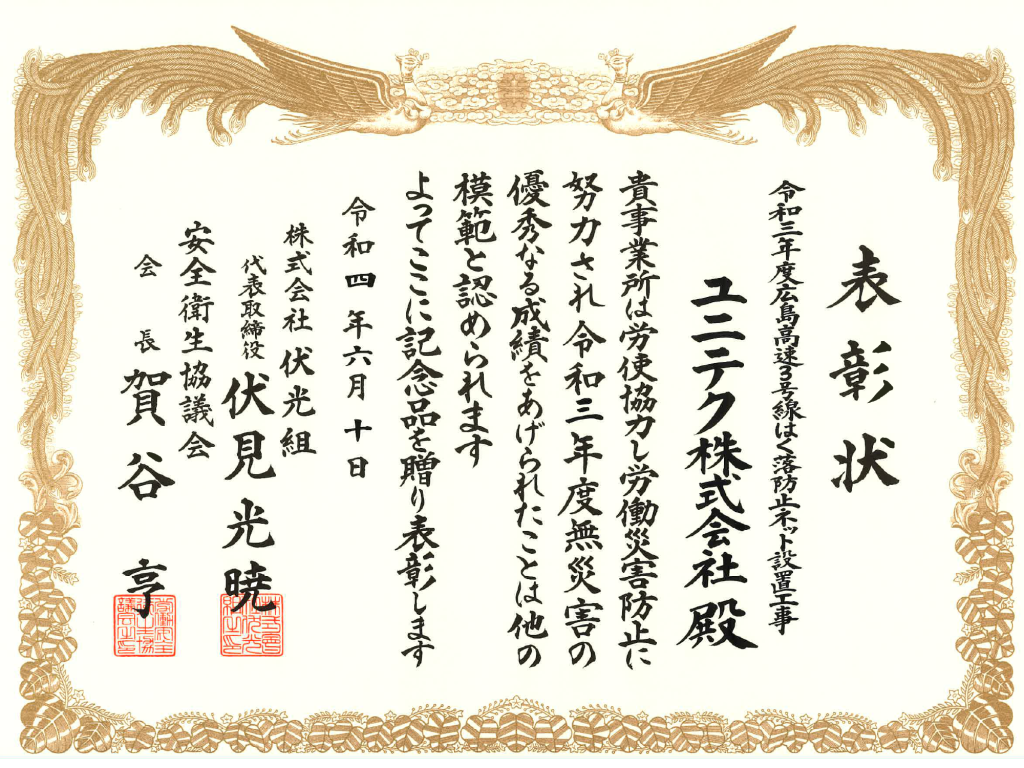 表彰状
令和三年度広島高速3号線はく落防止ネット設置工事
ユニテク株式会社 殿
貴事業所は労使協力し労働災害防止に
努力され令和三年度無災害の
優秀なる成績をあげられたことは他の
模範と認められます
よってここに記念品を贈り表彰します
令和四年六月十日
株式会社 伏光組
代表取締役 伏見光暁
安全衛生協議会
会長 賀谷 亨